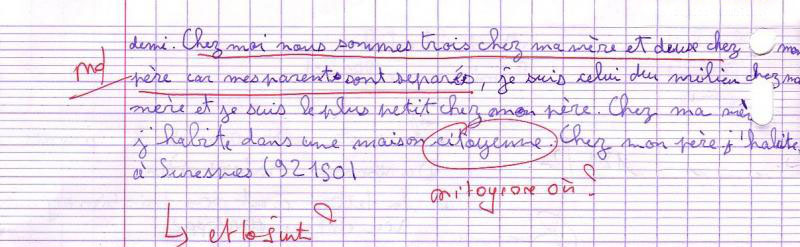 demi. Chez moi nous sommes trois chez ma mère et deux chez mon
md
père car mes parents sont separés, je suis celui du milieu chez ma
mère et je suis le plus petit chez mon père. Chez ma mère
j'habite dans une maison citoyenne. Chez mon père j'habite
à Suresnes (92150)
mitoyenne où ?
↳ et